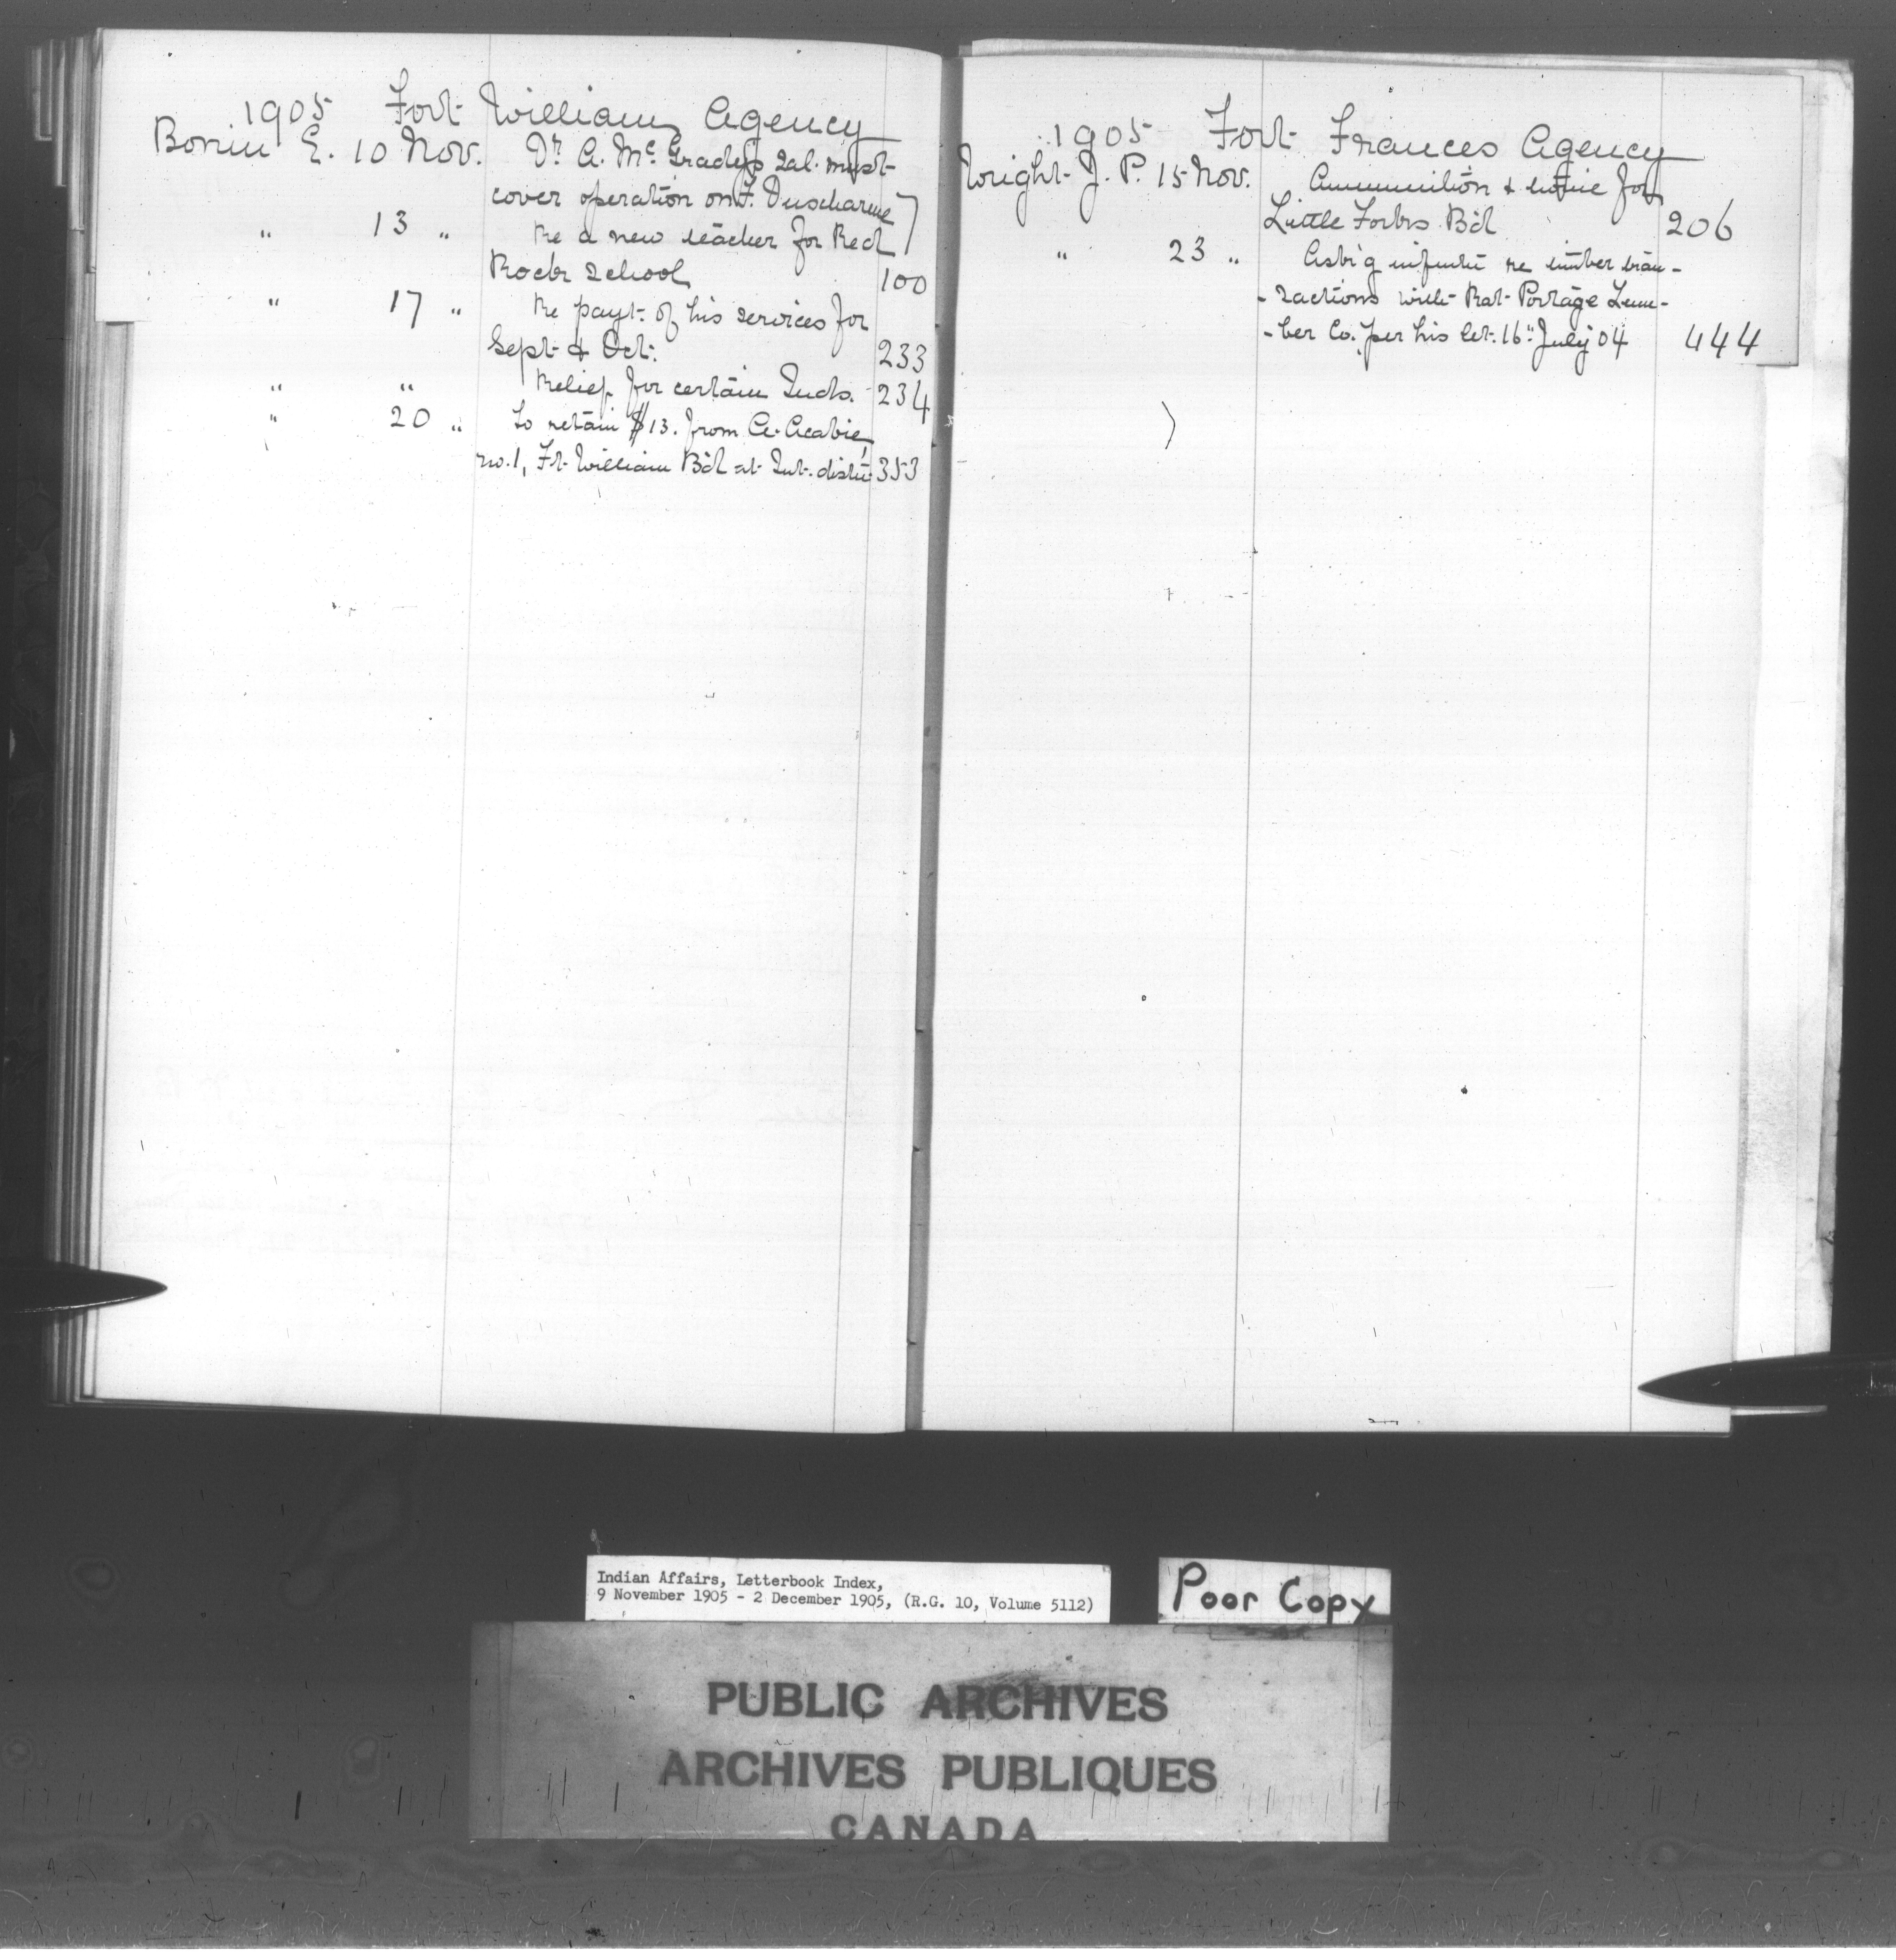 1905 Fort William Agency
Bonin E. 10 Nov. Dr A. McGrady's sal. must
cover operation on F. Duscharme 7
" 13 " Re a new teacher for Red
Rock School 100
" 17 " Re payt. of his services for
Sept & Oct. 233
" " Relief for certain Inds. 234
" 20 " to retain $13. from A. Acabie,
no. 1, Ft. William B'd at Int. distn 353
1905 Fort Frances Agency
Wright J. P. 15 Nov. Ammunition & twine for
Little Forks B'd 206
" 23 " Ask'g infmtn re timber tran-
-sactions with Rat Portage Lum-
-ber Co. per his let. 16" July 04 444
Indian Affairs, Letterbook Index,
9 November 1905 - 2 December 1905, (R.G. 10, Volume 5112)
Poor Copy
PUBLIC ARCHIVES
ARCHIVES PUBLIQUES
CANADA